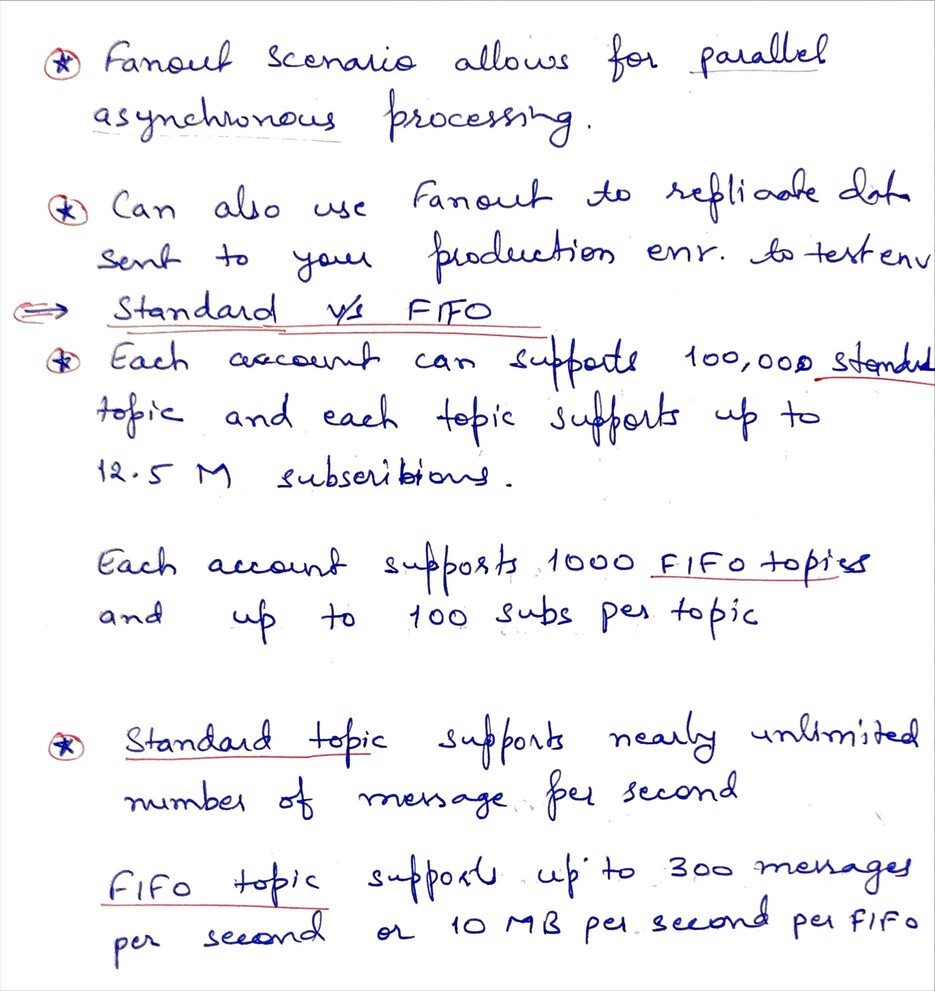 * Fanout scenario allows for parallel
asynchronous processing.
* Can also use Fanout to replicate data
sent to your production env. to test env
⇒ Standard v/s FIFO
* Each account can supports 100,000 standard
topic and each topic supports up to
12.5 M subscribions.
Each account supports 1000 FIFO topics
and up to 100 subs per topic
* Standard topic supports nearly unlimited
number of message per second
FIFO topic supports up to 300 messages
per second or 10 MB per second per FIFO